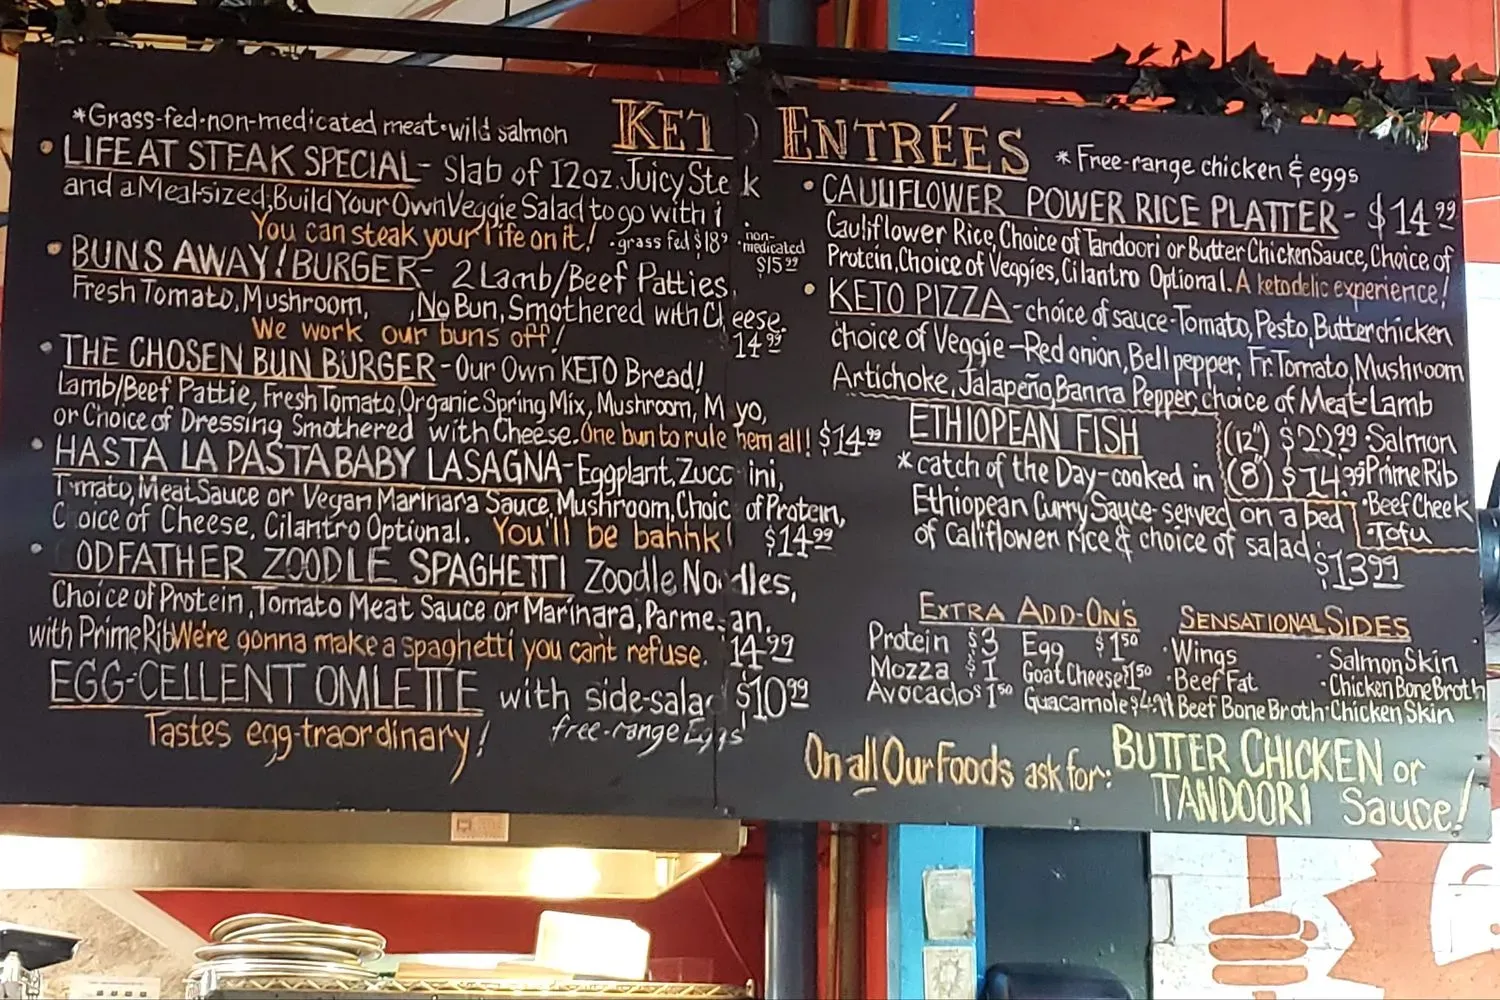 *Grass-fed-non-medicated meat•wild salmon
KET ENTRÉES
* Free-range chicken & eggs
• LIFE AT STEAK SPECIAL- Slab of 12oz. Juicy Ste k
and a Meal-sized, Build Your Own Veggie Salad to go with i
You can steak your life on it! •grass fed $18⁹ •non-medicated $15⁹⁹
• BUNS AWAY! BURGER- 2 Lamb/Beef Patties,
Fresh Tomato, Mushroom, , No Bun, Smothered with Ch eese.
We work our buns off! 14⁹⁹
• THE CHOSEN BUN BURGER-Our Own KETO Bread!
Lamb/Beef Pattie, Fresh Tomato, Organic Spring Mix, Mushroom, M yo,
or Choice of Dressing Smothered with Cheese. One bun to rule hem all! $14⁹⁹
• HASTA LA PASTABABY LASAGNA-Eggplant, Zucc ini,
T mato, Meat Sauce or Vegan Marinara Sauce, Mushroom, Choic of Protein,
C oice of Cheese, Cilantro Optional. You'll be bahhk! $14⁹⁹
• ODFATHER ZOODLE SPAGHETTI Zoodle No dles,
Choice of Protein, Tomato Meat Sauce or Marinara, Parme an.
with Prime Rib We're gonna make a spaghetti you can't refuse. 14.99
EGG-CELLENT OMLETTE with side-salad $10⁹⁹
Tastes egg-traordinary! free-range Eggs
• CAULIFLOWER POWER RICE PLATTER - $14⁹⁹
Cauliflower Rice, Choice of Tandoori or Butter Chicken Sauce, Choice of
Protein, Choice of Veggies, Cilantro Optional. A ketodelic experience!
• KETO PIZZA-choice of sauce-Tomato, Pesto, Butter chicken
choice of Veggie-Red onion, Bell pepper, Fr. Tomato, Mushroom
Artichoke, Jalapeño, Banna Pepper, choice of Meat-Lamb
(12") $22⁹⁹ •Salmon
(8) $14.⁹⁹ Prime Rib
•Beef Cheek
•Tofu
ETHIOPEAN FISH
*catch of the Day-cooked in
Ethiopean Curry Sauce-served on a bed
of Califlower rice & choice of salad.
$13⁹⁹
EXTRA ADD-ON'S
Protein $3 Egg $1⁵⁰
Mozza $1 Goat Cheese $1⁵⁰
Avocado $1⁵⁰ Guacamole
SENSATIONAL SIDES
•Wings •Salmon Skin
•Beef Fat •Chicken Bone Broth
Beef Bone Broth •Chicken Skin
On all Our Foods ask for: BUTTER CHICKEN or
TANDOORI Sauce!